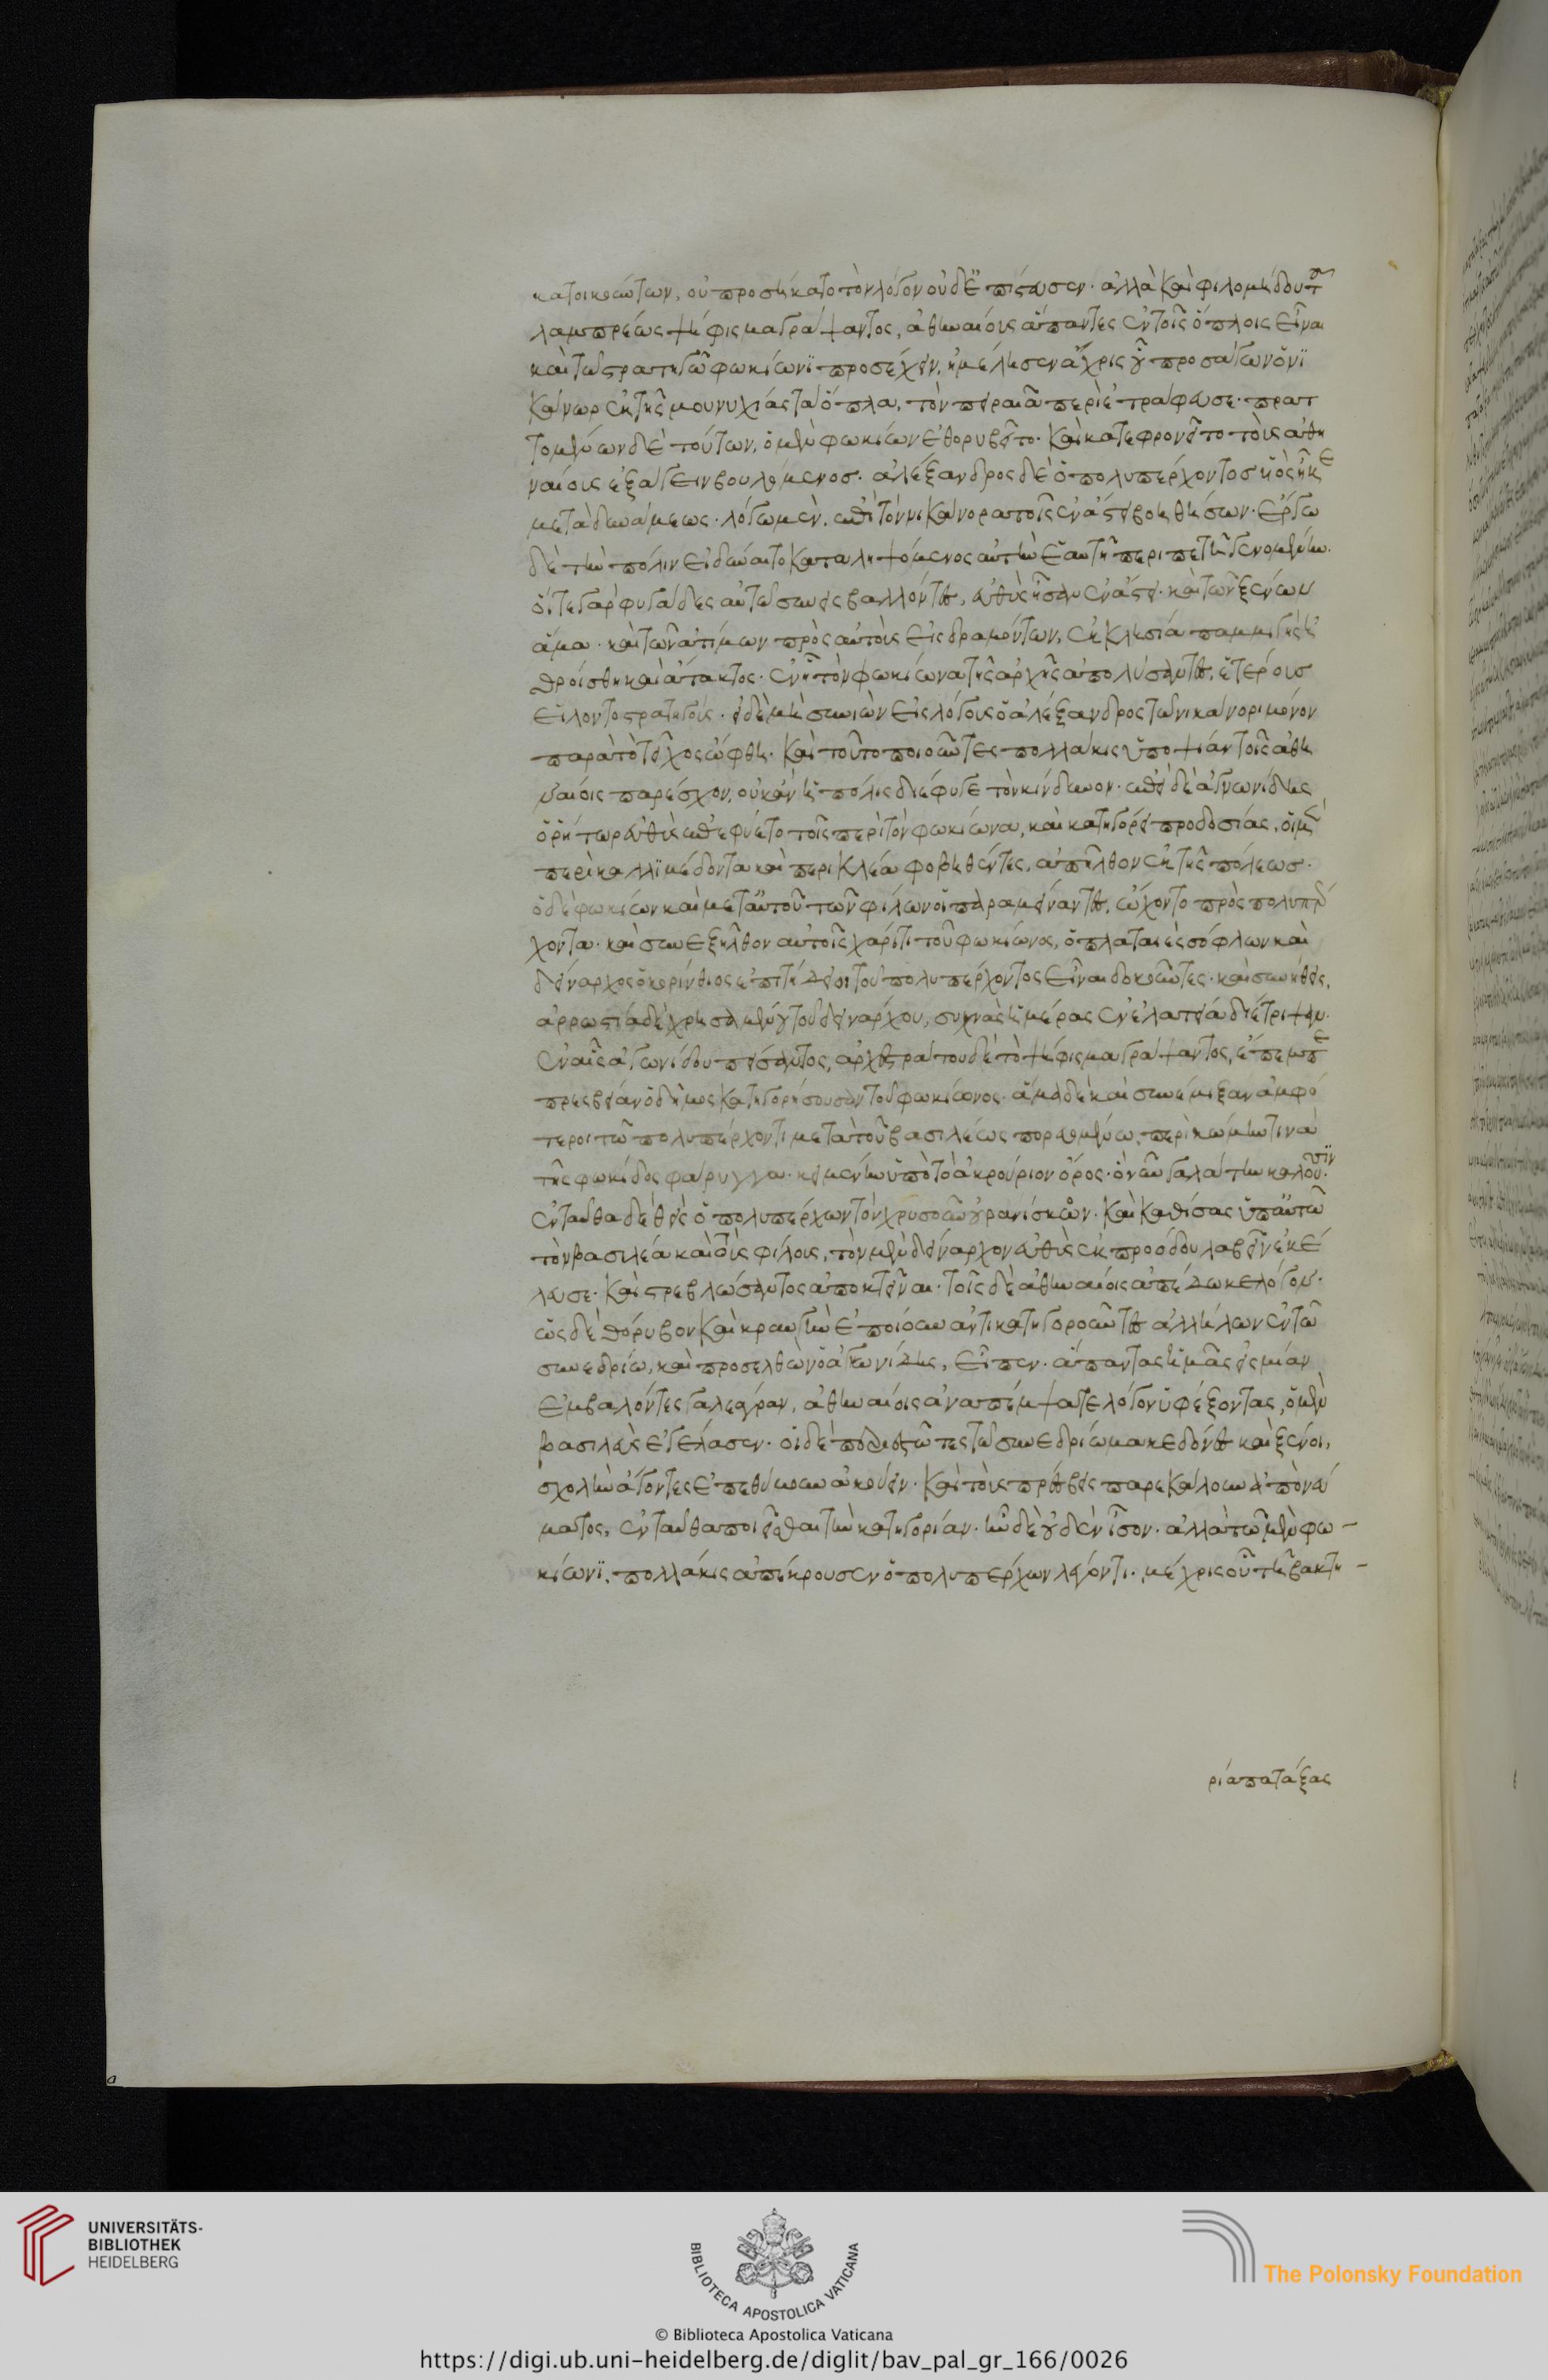 κατοικούντων, οὐ προσήκατο τὸν λόγον οὐδὲ πίστευσεν· ἀλλὰ καὶ φιλομήδου τοῦ
λαμπρέως ψήφισμα γράψαντος, ἀθηναίους ἅπαντες ἐν τοῖς ὅπλοις εἶναι
καὶ τῷ στρατηγῷ φωκίωνι προσέχειν, ἠμέλησεν ἄχρις οὗ προσάγων ὁ νι
κάνωρ ἐκ τῆς μουνυχίας τὰ ὅπλα, τὸν πειραιᾶ περιετράφευσε· πρατ
τομένων δὲ τούτων, ὁ μὲν φωκίων ἐθορυβεῖτο· καὶ κατεφρονεῖτο τοὺς ἀθη
ναίους ἐξάγειν βουλόμενος· ἀλέξανδρος δὲ ὁ πολυπέρχοντος υἱὸς ἧκε
μετὰ δυνάμεως· λόγῳ μὲν, ἐπὶ τὸν νικάνορα τοῖς ἐν ἄστει βοηθήσων· ἔργῳ
δὲ τὴν πόλιν εἰ δύναιτο καταληψόμενος αὐτὴν ἑαυτῇ περιπετῆ γενομένην·
οἵ τε γὰρ φυγάδες αὐτῷ συνεισβαλλόντες, εὐθὺς ἦσαν ἐν ἄστει· καὶ τῶν ξένων
ἅμα· καὶ τῶν ἀτίμων πρὸς αὐτοὺς εἰσδραμόντων, ἐκκλησία παμμιγὴς ἠ
θροίσθη καὶ ἄτακτος· ἐν ᾗ τὸν φωκίωνα τῆς ἀρχῆς ἀπολύσαντες, ἑτέρους
εἵλοντο στρατηγούς· εἰ δὲ μὴ συνιὼν εἰς λόγους ὁ ἀλέξανδρος τῷ νικάνορι μόνον
παρὰ τὸ τεῖχος ὤφθη· καὶ τοῦτο ποιοῦντες πολλάκις ὑποψίαν τοῖς ἀθη
ναίοις παρέσχον, οὐκ ἂν ἡ πόλις διέφυγε τὸν κίνδυνον· ἐπεὶ δὲ ἁγνωνίδης
ὁ ῥήτωρ εὐθὺς ἐπεφύετο τοῖς περὶ τὸν φωκίωνα, καὶ κατηγόρει προδοσίας, οἱ μὲν
περὶ καλλιμέδοντα καὶ περικλέα φοβηθέντες, ἀπῆλθον ἐκ τῆς πόλεως·
ὁ δὲ φωκίων καὶ μετ' αὐτοῦ τῶν φίλων οἱ παραμείναντες, ᾤχοντο πρὸς πολυπέρ
χοντα· καὶ συνεξῆλθον αὐτοῖς χάριτι τοῦ φωκίωνος, ὁ πλαταιεὺς σόφλων καὶ
δείναρχος ὁ κορίνθιος ἐπιτήδειοι τοῦ πολυπέρχοντος εἶναι δοκοῦντες· καὶ συνήθεις,
ἀρρωστία δὲ χρησαμένου τοῦ δεινάρχου, συχνὰς ἡμέρας ἐν ἐλατείᾳ διέτριψαν·
ἐν αἷς ἁγωνίδου πείσαντος, ἀρχεστράτου δὲ τὸ ψήφισμα γράψαντος, ἔπεμπε
πρεσβείαν ὁ δῆμος κατηγορήσουσαν τοῦ φωκίωνος· ἅμα δὲ καὶ συνέμιξαν ἀμφό
τεροι τῷ πολυπέρχοντι μετὰ τοῦ βασιλέως πορευομένῳ, περὶ κώμην τινὰ
τῆς φωκίδος φάρυγγα· κειμένην ὑπὸ τὸ ἀκρούριον ὄρος· ὃ νῦν γαλάτην καλοῦσιν·
ἐνταῦθα δὲ θεὶς ὁ πολυπέρχων τὸν χρυσοῦν οὐρανίσκον· καὶ καθίσας ὑπ' αὐτῷ
τὸν βασιλέα καὶ τοὺς φίλους, τὸν μὲν δείναρχον εὐθὺς ἐκ προόδου λαβεῖν ἐκέ
λευσε· καὶ στρεβλώσαντος ἀποκτεῖναι· τοῖς δὲ ἀθηναίοις ἀπέδωκε λόγον·
ὡς δὲ θόρυβον καὶ κραυγὴν ἐποίουν ἀντικατηγοροῦντες ἀλλήλων ἐν τῷ
συνεδρίῳ, καὶ προσελθὼν ὁ ἁγωνίδης, εἶπεν· ἅπαντας ἡμᾶς εἰς μίαν
ἐμβαλόντες γαλεάγραν, ἀθηναίοις ἀναπέμψατε λόγον ὑφέξοντας, ὁ μὲν
βασιλεὺς ἐγέλασεν· οἱ δὲ περιεστῶτες τῷ συνεδρίῳ μακεδόνες καὶ ξένοι,
σχολὴν ἄγοντες ἐπεθύμουν ἀκούειν· καὶ τοὺς πρέσβεις παρεκάλουν ἀπὸ νεύ
ματος, ἐνταῦθα ποιεῖσθαι τὴν κατηγορίαν· ἦν δὲ οὐδὲν ἴσον· ἀλλὰ τῷ μὲν φω
κίωνι, πολλάκις ἀπέκρουσεν ὁ πολυπέρχων λέγοντι· μέχρις οὗ τῇ βακτη
ρίᾳ πατάξας
UNIVERSITÄTS-
BIBLIOTHEK
HEIDELBERG
BIBLIOTECA APOSTOLICA VATICANA
© Biblioteca Apostolica Vaticana
The Polonsky Foundation
https://digi.ub.uni-heidelberg.de/diglit/bav_pal_gr_166/0026